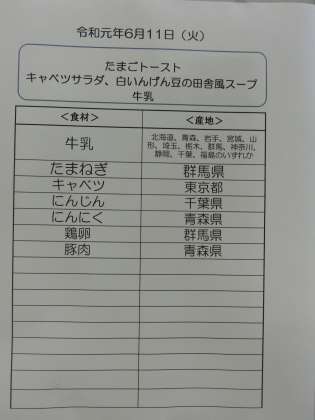 令和元年6月11日（火）
たまごトースト
キャベツサラダ、白いんげん豆の田舎風スープ
牛乳
＜食材＞ ＜産地＞
牛乳 北海道、青森、岩手、宮城、山
形、埼玉、栃木、群馬、神奈川、
静岡、千葉、福島のいずれか
たまねぎ 群馬県
キャベツ 東京都
にんじん 千葉県
にんにく 青森県
鶏卵 群馬県
豚肉 青森県